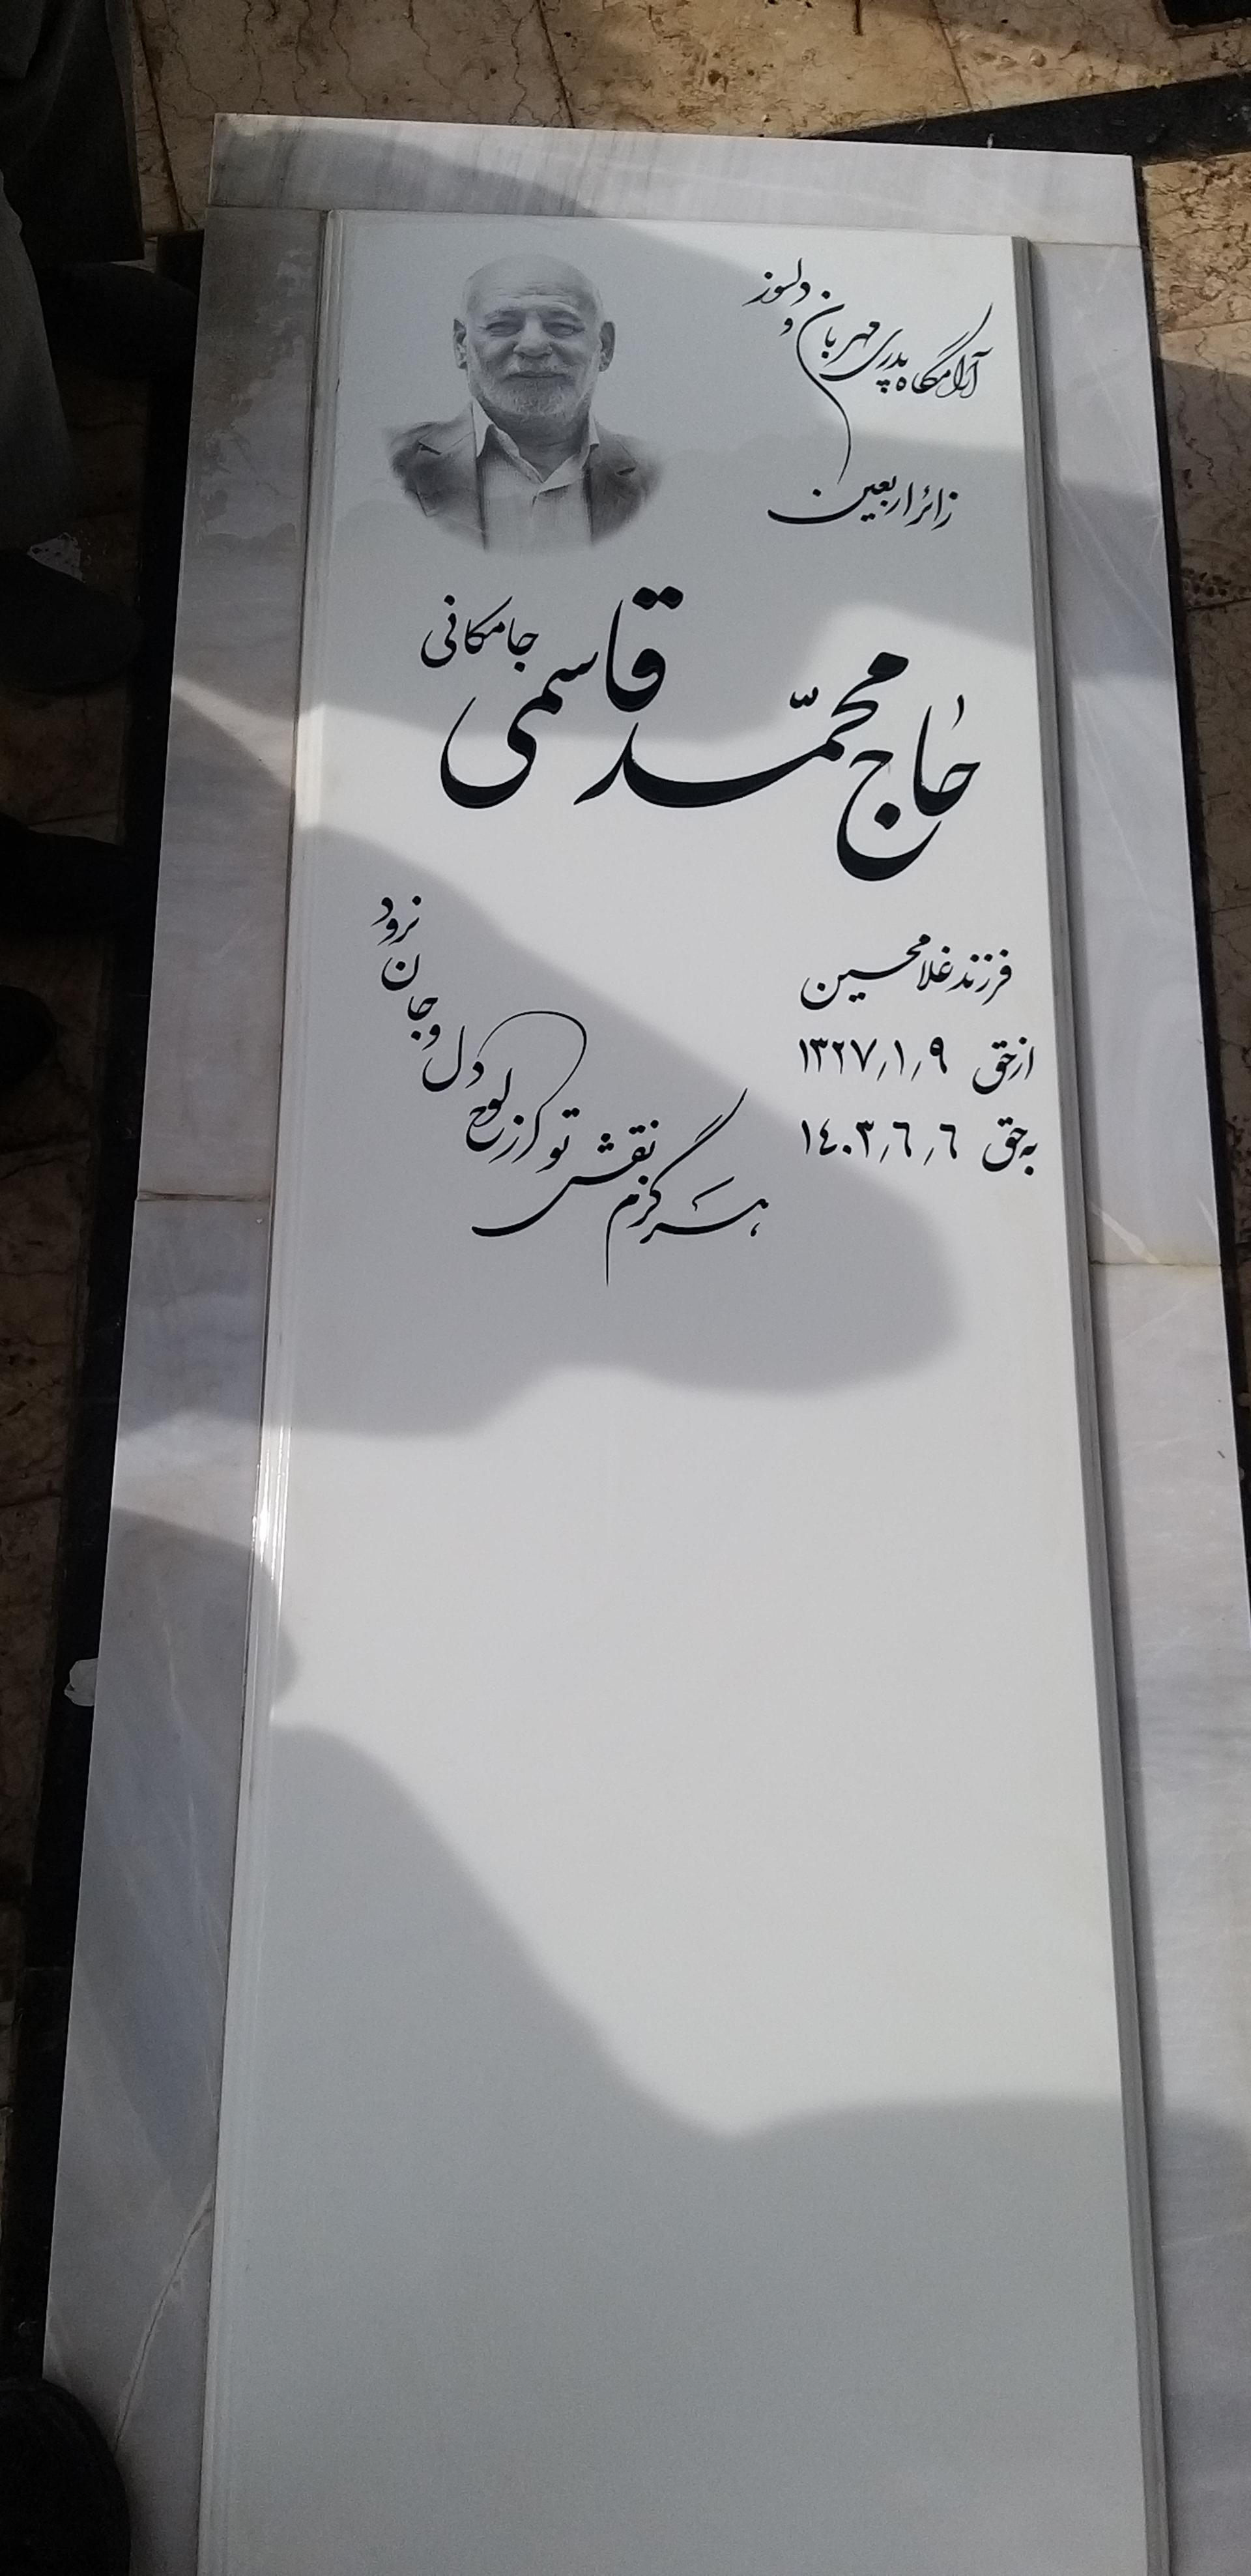 آرامگاه پدری مهربان و دلسوز
زائر اربعین
حاج محمّد قاسمی جامکانی
فرزند غلامحسین
از حق ۱۳۲۷/۱/۹
به حق ۱٤۰۳/٦/٦
هرگزم نقش تو از لوح دل و جان نرود